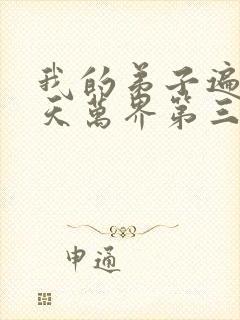 我的弟子遍
天萬界第三
申通